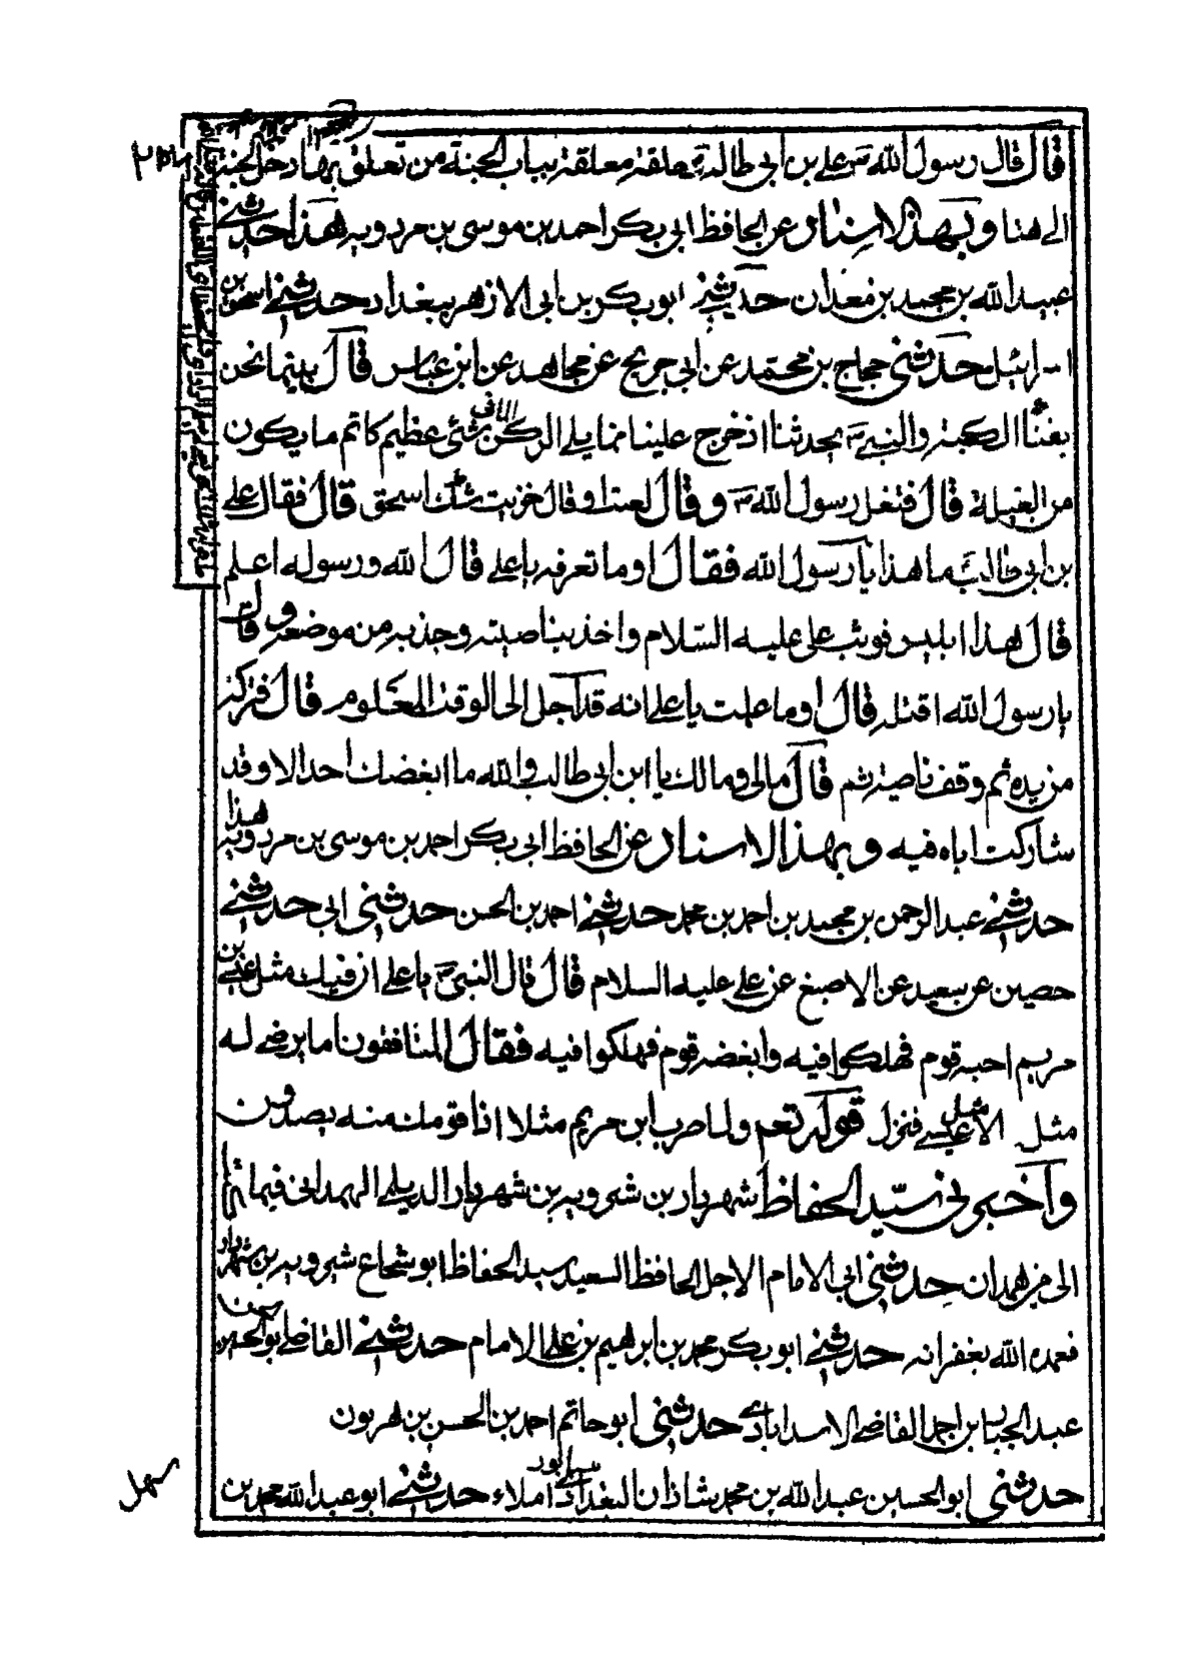 قال قال رسول الله ص علي بن ابي طالب حلقة معلقة بباب الجنة من تعلق بها دخل الجنة
الى هنا وبهذا الاسناد عن الحافظ ابي بكر احمد بن موسى بن مردويه هذا حدثني
عبيد الله بن محمد بن معدان حدثني ابو بكر بن ابي الازهر ببغداد حدثني اسحق بن
اسرائيل حدثني حجاج بن محمد عن ابي جريح عن مجاهد عن ابن عباس قال بينما نحن
بفناء الكعبة والنبي ص يحدثنا اذ خرج علينا مما يلي الركن اليماني شئ عظيم كاتم ما يكون
من الفيلة قال فتفل رسول الله ص وقال لعنت او قال خزيت شك اسحق قال فقال علي
بن ابي طالب ع ما هذا يا رسول الله فقال او ما تعرفه يا علي قال الله ورسوله اعلم
قال هذا ابليس فوثب علي عليه السلام واخذ بناصيته وجذبه من موضعه وقال
يا رسول الله اقتله قال او ما علمت يا علي انه قد اجل الى الوقت المعلوم قال فتركه
من يده ثم وقف ناصيته ثم قال مالي ومالك يا ابن ابي طالب والله ما ابغضك احد الا وقد
شاركت اباه فيه وبهذا الاسناد عن الحافظ ابي بكر احمد بن موسى بن مردويه هذا
حدثني عبد الرحمن بن محمد بن احمد بن محمد حدثني احمد بن الحسن حدثني ابي حدثني
حصين عن سعيد عن الاصبغ عن علي عليه السلام قال قال النبي ص يا علي ان فيك مثل عيسى بن
مريم احبه قوم فهلكوا فيه وابغضه قوم فهلكوا فيه فقال المنافقون اما يرضى له
مثل الا مثل عيسى فنزل قوله تعم ولما ضرب ابن مريم مثلا اذا قومك منه يصدون
واخبرني سيد الحفاظ شهردار بن شيرويه بن شهردار الديلمي الهمداني فيما
الى من همدان حدثني ابي الامام الاجل الحافظ السعيد سيد الحفاظ ابو شجاع شيرويه بن شهردار
تغمده الله بغفرانه حدثني ابو بكر محمد بن ابرهيم بن علي الامام حدثني القاضي ابو الحسن
عبد الجبار بن احمد القاضي الاسدابادي حدثني ابو حاتم احمد بن الحسن بن هرون
حدثني ابو الحسين عبد الله بن محمد شاذان البغدادي املاء حدثني ابو عبد الله محمد بن
سهل